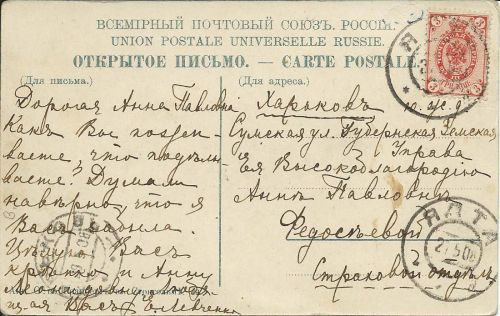 ВСЕМІРНЫЙ ПОЧТОВЫЙ СОЮЗЪ. РОССІЯ.
UNION POSTALE UNIVERSELLE RUSSIE.
ОТКРЫТОЕ ПИСЬМО. — CARTE POSTALE.
(Для письма.)
Дорогая Анна Павловна
Какъ Вы поздо-
ваете, что подѣлы-
ваете? Думали
навѣрно, что я
Васъ забыла.
Цѣлую Васъ
крѣпко и Анну
Леонидовну. Люб
ящая Васъ Е. Левченко
(Для адреса.)
Харьковъ ю. ж. д.
Сумская ул. Губернская Земская
Управа
Ея Высокоблагородію
Аннѣ Павловнѣ
Федосѣевой
Страховой отдѣлъ
ЯЛТА